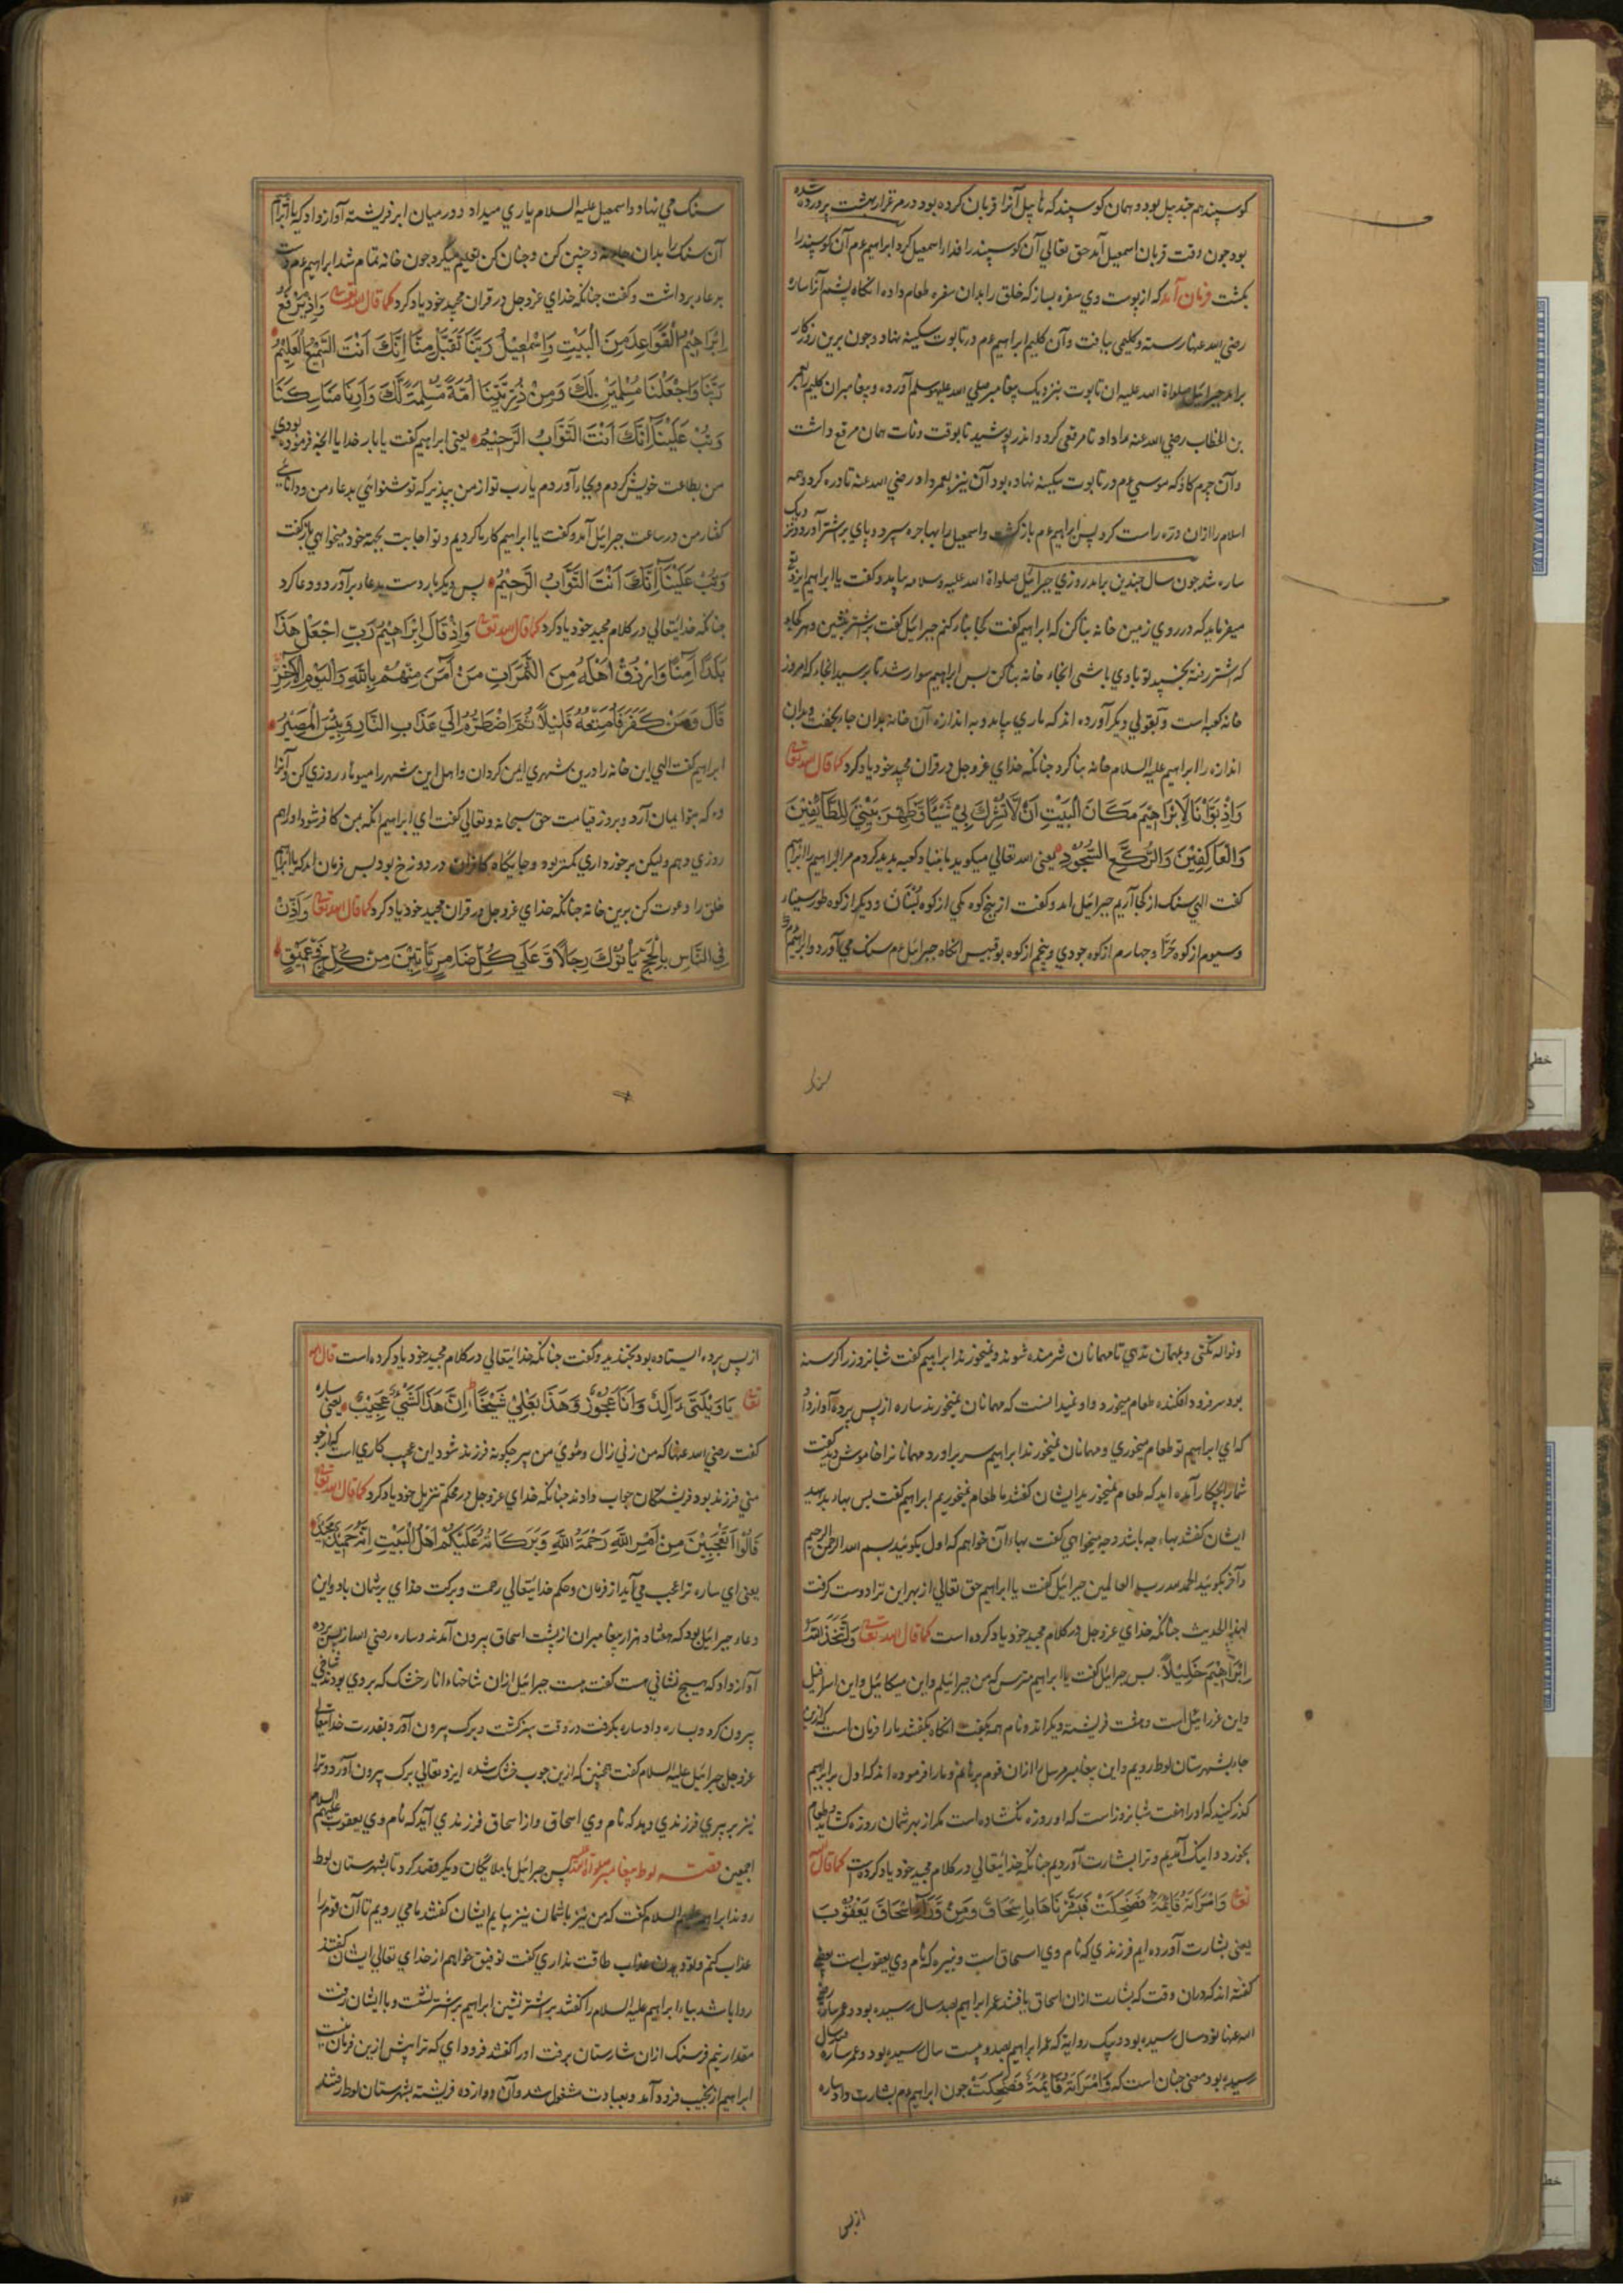 کوسپند هم چند پیل بود و همان کوسپند که هابیل آنرا قربان کرده بود در مرغزار بهشت پرورده شده
بود چون وقت قربان اسمعیل آمد حق تعالی آن کوسپند را فدا را اسمعیل کرد ابراهیم عم آن کوسپند را
بکشت فرمان آمد که از پوست وی سفره بساز که خلق را بدان سفره طعام داده انکاه پشم آنرا ساره
رضی الله عنها رسته و کلیمی ببافت و آن کلیم ابراهیم عم در تابوت سکینه نهاد و چون برین روزکار
برامد جبرائیل صلواة الله علیه ان تابوت بنزدیک پیغامبر صلی الله علیه وسلم آورده و پیغامبر ان کلیم را بعمر
بن الخطاب رضی الله عنه را داد تا مرقعی کرد و اندر پوشید تا بوقت وفات همان مرقع داشت
و آن چرم کاو که موسی عم در تابوت سکینه نهاده بود آن نیز بعمر داد رضی الله عنه تا دره کرد و همه
اسلام را ازان دره راست کرد پس ابراهیم عم باز کشت و اسمعیل را بهاجره سپرد و پای بر شتر آورد و نزد
ساره شد چون سال چندین برامد روزی جبرائیل صلواة الله علیه وسلامه بیامد و کفت یا ابراهیم ایزد تع
میفرماید که در روی زمین خانه بنا کن که ابراهیم کفت کجا بنا کنم جبرائیل کفت بر شتر نشین و هر کجا
که اشتر رفته بخسپد تو بادی باشی انجاء خانه بنا کن بس ابراهیم سوار شد تا برسید انجاء که امروز
خانه کعبه است و بقولی دیکر آورده اند که باری بیامد و به اندازه آن خانه بدان جاء بخفت و بران
اندازه را ابراهیم علیه السلام خانه بنا کرد چنانکه خدای عزوجل در قران مجید خود یاد کرد کما قال الله تعالی
وَاِذْ بَوَّاْنَا لِاِبْرَاهِيْمَ مَكَانَ الْبَيْتِ اَنْ لَاتُشْرِكْ بِيْ شَيْئًا وَطَهِّرْ بَيْتِيَ لِلطَّآئِفِيْنَ
وَالْعَاكِفِيْنَ وَالرُّكَّعِ السُّجُوْدِ یعنی الله تعالی میکوید ما بنیاد کعبه بدید کردم مر ابراهیم را ابراهیم
کفت الهی سنک از کجا آریم جبرائیل امد و کفت از پنج کوه یکی از کوه لُبْنَان و دیکر از کوه طور سینا
و سیوم از کوه حَرَّا و چهارم از کوه جودی و پنجم از کوه بوقبیس انکاه جبرائیل عم سنک می آورد و ابراهیم
سنک می نهاد و اسمعیل علیه السلام یاری میداد و در میان ابر فریشته آواز داد که یا ابراهیم
آن سنک را بدان جا بنه و چنین کن و چنان کن تعلیم میکرد چون خانه تمام شد ابراهیم عم دست
بر عاء برداشت و کفت چنانکه خدای عزوجل در قران مجید خود یاد کرد کما قال الله تعالی وَاِذْ يَرْفَعُ
اِبْرَاهِيْمُ الْقَوَاعِدَ مِنَ الْبَيْتِ وَاِسْمٰعِيْلُ رَبَّنَا تَقَبَّلْ مِنَّا اِنَّكَ اَنْتَ السَّمِيْعُ الْعَلِيْمُ
رَبَّنَا وَاجْعَلْنَا مُسْلِمَيْنِ لَكَ وَمِنْ ذُرِّيَّتِنَا اُمَّةً مُسْلِمَةً لَكَ وَاَرِنَا مَنَاسِكَنَا
وَتُبْ عَلَيْنَا اِنَّكَ اَنْتَ التَّوَّابُ الرَّحِيْمُ یعنی ابراهیم کفت یا بار خدایا انچه فرموده بودی
من بطاعت خویش کردم و بجا آوردم یا رب تو از من بپذیر که تو شنوائی بدعاء من و دانائی
کفتار من در ساعت جبرائیل آمد و کفت یا ابراهیم کار ما کردیم و تو اجابت بجهة خود میخواهی باز کفت
وَتُبْ عَلَيْنَا اِنَّكَ اَنْتَ التَّوَّابُ الرَّحِيْمُ پس دیکر بار دست بدعاء برآورد و دعا کرد
چنانکه خدایتعالی در کلام مجید خود یاد کرد کما قال الله تعالی وَاِذْ قَالَ اِبْرَاهِيْمُ رَبِّ اجْعَلْ هٰذَا
بَلَدًا اٰمِنًا وَارْزُقْ اَهْلَهُ مِنَ الثَّمَرَاتِ مَنْ اٰمَنَ مِنْهُمْ بِاللّٰهِ وَالْيَوْمِ الْاٰخِرِ
قَالَ وَمَنْ كَفَرَ فَاُمَتِّعُهُ قَلِيْلًا ثُمَّ اَضْطَرُّهُ اِلٰي عَذَابِ النَّارِ وَبِئْسَ الْمَصِيْرُ
ابراهیم کفت الهی این خانه را درین شهری ایمن کردان و اهل این شهر را میوهاء روزی کن و آنرا
که بتو ایمان آرد و بروز قیامت حق سبحانه و تعالی کفت ای ابراهیم انکه بمن کافر شود او را هم
روزی دهم ولیکن برخورداری کمتر بود و جایکاه کافران در دوزخ بود بس فرمان امد که یا ابراهیم
خلق را دعوت کن برین خانه چنانکه خدای عزوجل در قران مجید خود یاد کرد کما قال الله تعالی وَاَذِّنْ
فِي النَّاسِ بِالْحَجِّ يَاْتُوْكَ رِجَالًا وَّعَلٰي كُلِّ ضَامِرٍ يَّاْتِيْنَ مِنْ كُلِّ فَجٍّ عَمِيْقٍ
و نواله نکنی و بمهمان ندهی تا مهمانان شرمنده شوند و نمیخورند ابراهیم کفت شبانروز را کرسنه
بود سر فرود افکنده طعام میخورد و او نمیدانست که مهمانان نمیخورند ساره از پس پرده آواز داد
که ای ابراهیم تو طعام میخوری و مهمانان نمیخورند ابراهیم سر براورد مهمانانرا خاموش دید کفت
شما را بچکار آمده اید که طعام نمیخورید ایشان کفتند ما طعام نمیخوریم ابراهیم کفت بس بهاء بدهید
ایشان کفتند بهاء چه باشد و چه میخواهی کفت بهاء آن خواهم که اول بکوئید بسم الله الرحمن الرحیم
و آخر بکوئید الحمد لله رب العالمین جبرائیل کفت یا ابراهیم حق تعالی از بهر این ترا دوست کرفت
لهذا الحدیث چنانکه خدای عزوجل در کلام مجید خود یاد کرده است کما قال الله تعالی وَاتَّخَذَ اللّٰهُ
اِبْرَاهِيْمَ خَلِيْلًا. بس جبرائیل کفت یا ابراهیم مترس که من جبرائیلم و این میکائیل و این اسرافیل
و این عزرائیل است و هفت فریشته دیکر اند و نام همه بکفت انکاه بکفتند ما را فرمان است که ازین
جاء بشهرستان لوط رویم و این پیغامبر مرسل را ازان قوم برهانیم و ما را فرموده اند که اول بر ابراهیم
کذر کنید که او را هفت شبانروز است که او روزه نکشاده است مکر از بهر شمان روزه کشاید و طعام
بخورد و اینک آمدیم و ترا بشارت آوردیم چنانکه خدایتعالی در کلام مجید خود یاد کرده است کما قال الله
تعالی وَامْرَاَتُهُ قَآئِمَةٌ فَضَحِكَتْ فَبَشَّرْنَاهَا بِاِسْحَاقَ وَمِنْ وَّرَآءِ اِسْحَاقَ يَعْقُوْبَ
یعنی بشارت آورده ایم فرزندی که نام وی اسحاق است و نبیره که نام وی یعقوب است بعضی
کفته اند که دران وقت که بشارت ازان اسحاق یافتند عمر ابراهیم بصد سال رسیده بود و عمر ساره رضی
الله عنها نود سال رسیده بود و بیک روایة که عمر ابراهیم بصد و بیست سال رسیده بود و عمر ساره سال
رسیده بود معنی چنان است که وَامْرَاَتُهُ قَآئِمَةٌ فَضَحِكَتْ چون ابراهیم عم بشارت داد ساره
از پس
از پس پرده ایستاده بود بخندید و کفت چنانکه خدایتعالی در کلام مجید خود یاد کرده است قال الله
تعالی يَاوَيْلَتٰى ءَاَلِدُ وَاَنَا عَجُوْزٌ وَهٰذَا بَعْلِيْ شَيْخًا اِنَّ هٰذَا لَشَيْءٌ عَجِيْبٌ یعنی ساره
کفت رضی الله عنها که من زنی زال و شوی من پیر چکونه فرزند شود این عجب کاری است که از چو
منی فرزند بود فریشتکان جواب دادند چنانکه خدای عزوجل در محکم تنزیل خود یاد کرد کما قال الله تعالی
قَالُوْا اَتَعْجَبِيْنَ مِنْ اَمْرِ اللّٰهِ رَحْمَةُ اللّٰهِ وَبَرَكَاتُهُ عَلَيْكُمْ اَهْلَ الْبَيْتِ اِنَّهُ حَمِيْدٌ مَّجِيْدٌ
یعنی ای ساره ترا عجب می آید از فرمان و حکم خدایتعالی رحمت و برکت خدای بر شمان باد و این
دعاء جبرائیل بود که هفتاد هزار پیغامبران از پشت اسحاق بیرون آمدند و ساره رضی الله از پس پرده
آواز داد که هیچ نشانی هست کفت هست جبرائیل ازان شاخهاء انار خشک که بر وی بودند شاخی
بیرون کرد و بساره داد ساره بکرفت در وقت سبز کشت و برک بیرون آورد بقدرت خدایتعالی
عزوجل جبرائیل علیه السلام کفت همچنین که ازین چوب خشک شده ایزد تعالی برک بیرون آورد و ترا
نیز بر پیری فرزندی دهد که نام وی اسحاق و از اسحاق فرزندی آید که نام وی یعقوب علیهم السلام
اجمعین قصه لوط پیغامبر صلواة الله پس جبرائیل با ملایکان دیکر قصد کرد تا بشهرستان لوط
روند ابراهیم علیه السلام کفت که من نیز با شمان نیز بیایم ایشان کفتند ما می رویم تا آن قوم را
عذاب کنم و تو بدیدن عذاب طاقت نداری کفت توفیق خواهم از خدای تعالی ایشان کفتند
روا باشد بیاء ابراهیم علیه السلام را کفتند بر اشتر نشین ابراهیم بر شتر نشت و با ایشان رفت
مقدار نیم فرسنک ازان شارستان برفت او را کفتند فرود ای که ترا پیش ازین فرمان نیست
ابراهیم از نجیب فرود آمد و بعبادت مشغول شد و آن دوازده فریشته بشهرستان لوط رفتند